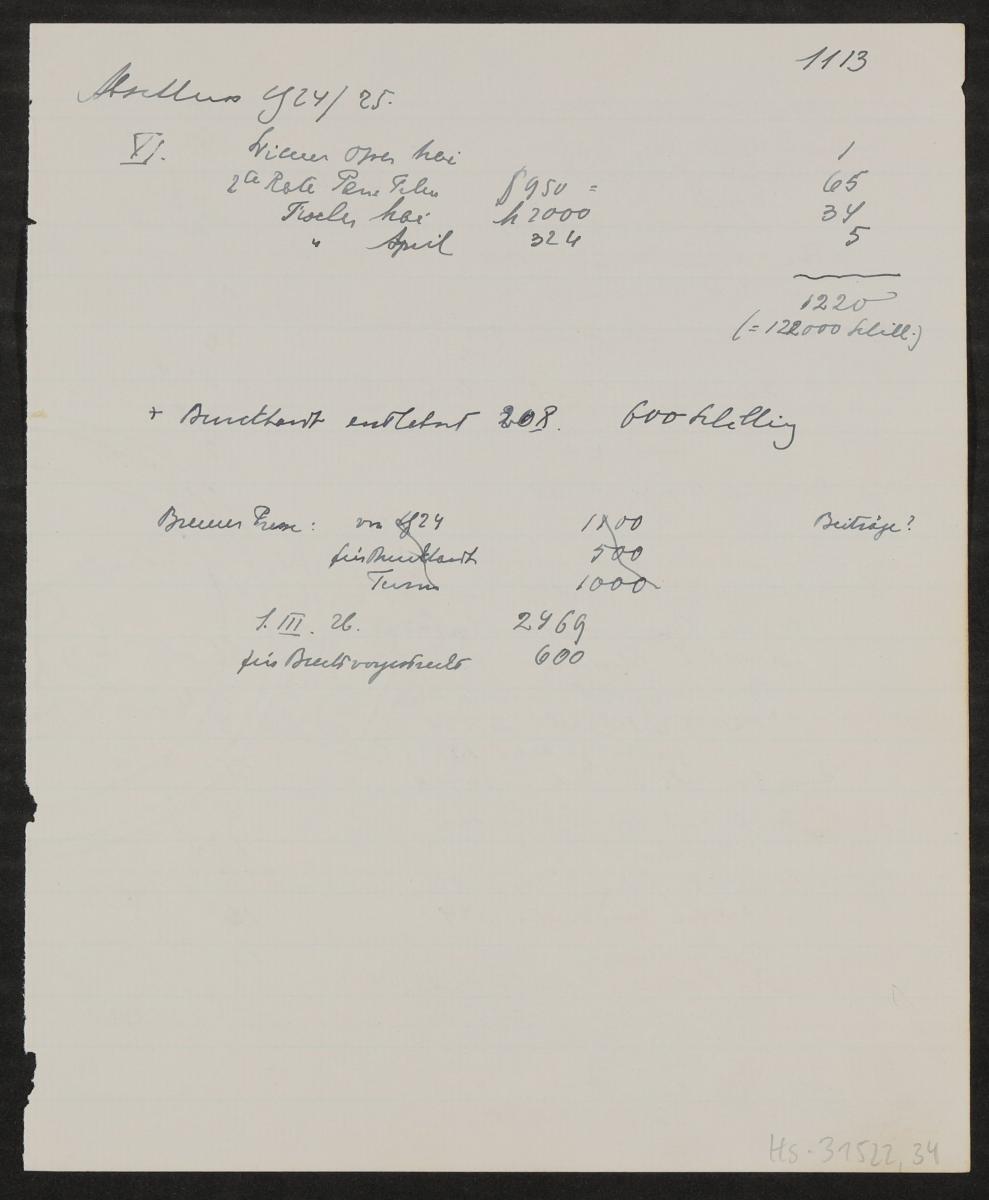 1113
Abschluss 924/25.
VI. Wiener Oper Mai 1
2te Rate Pan Film $ 950 = 65
Fischer Mai M 2000 34
" April 324 5
1220
(= 122000 Schill.)
+ Burckhardt entlehnt 208. 600 Schilling
Bremer Presse: von 924 1500 Beiträge?
für Burckhardt 500
1000
1. III. 26. 2469
für Brecht vorgestreckt 600
Hs-31522,34